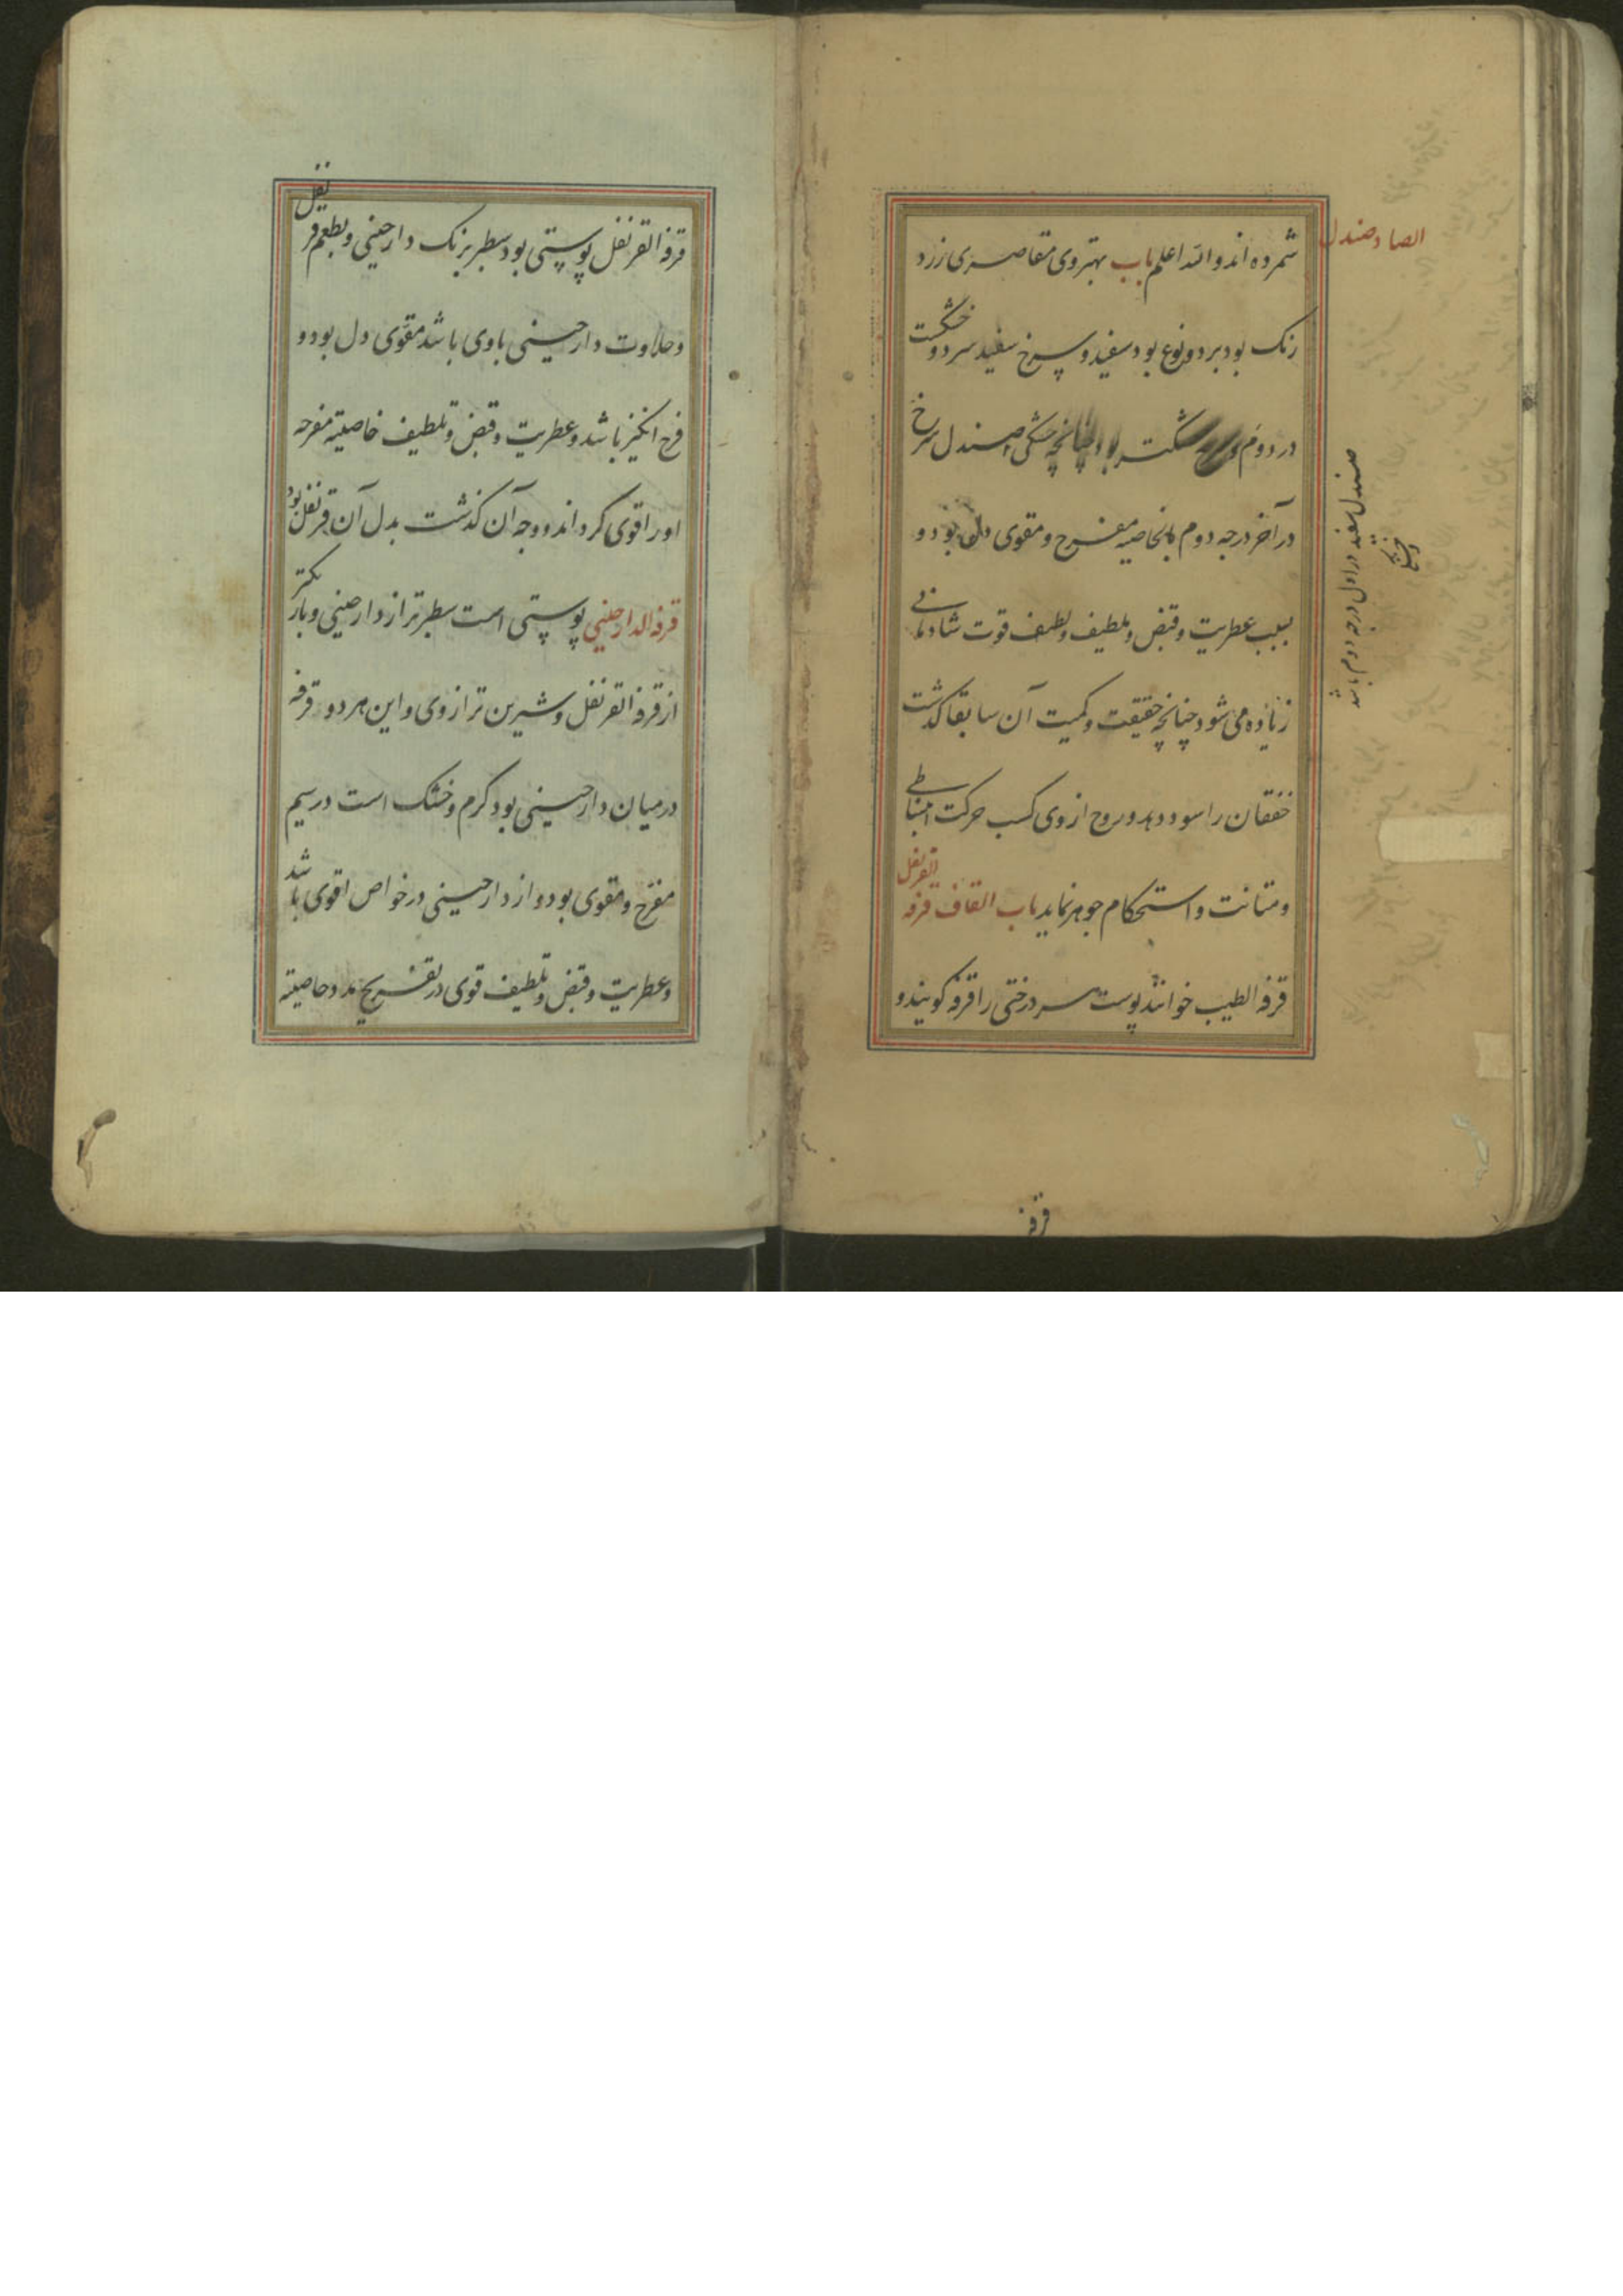 شمرده اند والله اعلم باب الصاد صندل بهتر وی مقاصری زرد
رنک بود بر دو نوع بود سفید و سرخ سفید سرد و خشکست
در دوم چنانچه خشکی صندل سرخ
صندل سفید در اول درجه دوم باشد
در آخر درجه دوم بالخاصیه مفرح و مقوی دل بود و
بسبب عطریت و قبض و تلطیف ولطیف قوت شادمانی
زیاده می شود چنانچه حقیقت و کمیت آن سابقا کذشت
خفقان را سود دهد و روح از وی کسب حرکت انبساطی
و متانت و استحکام جوهر نماید باب القاف قرفه القرنفل
قرفه الطیب خوانند پوست سر درختی را قرفه کویند و
قرفه
قرفه القرنفل پوستی بود سطبر برنک دارچینی و بطعم قرنفل
و حلاوت دارچینی با وی باشد مقوی دل بود و
فرح انکیز باشد و عطریت و قبض و تلطیف خاصیته مفرحه
او را قوی کرداند و وجه آن کذشت بدل آن قرنفل بود
قرفه الدارچینی پوستی است سطبر تر از دارچینی و باریکتر
از قرفه القرنفل و شیرین تر از وی و این هر دو قرفه
در میان دارچینی بود کرم و خشک است در سیم
مفرح و مقوی بود و از دارچینی در خواص اقوی باشد
و عطریت و قبض و تلطیف قوی در تفریح مدد خاصیته